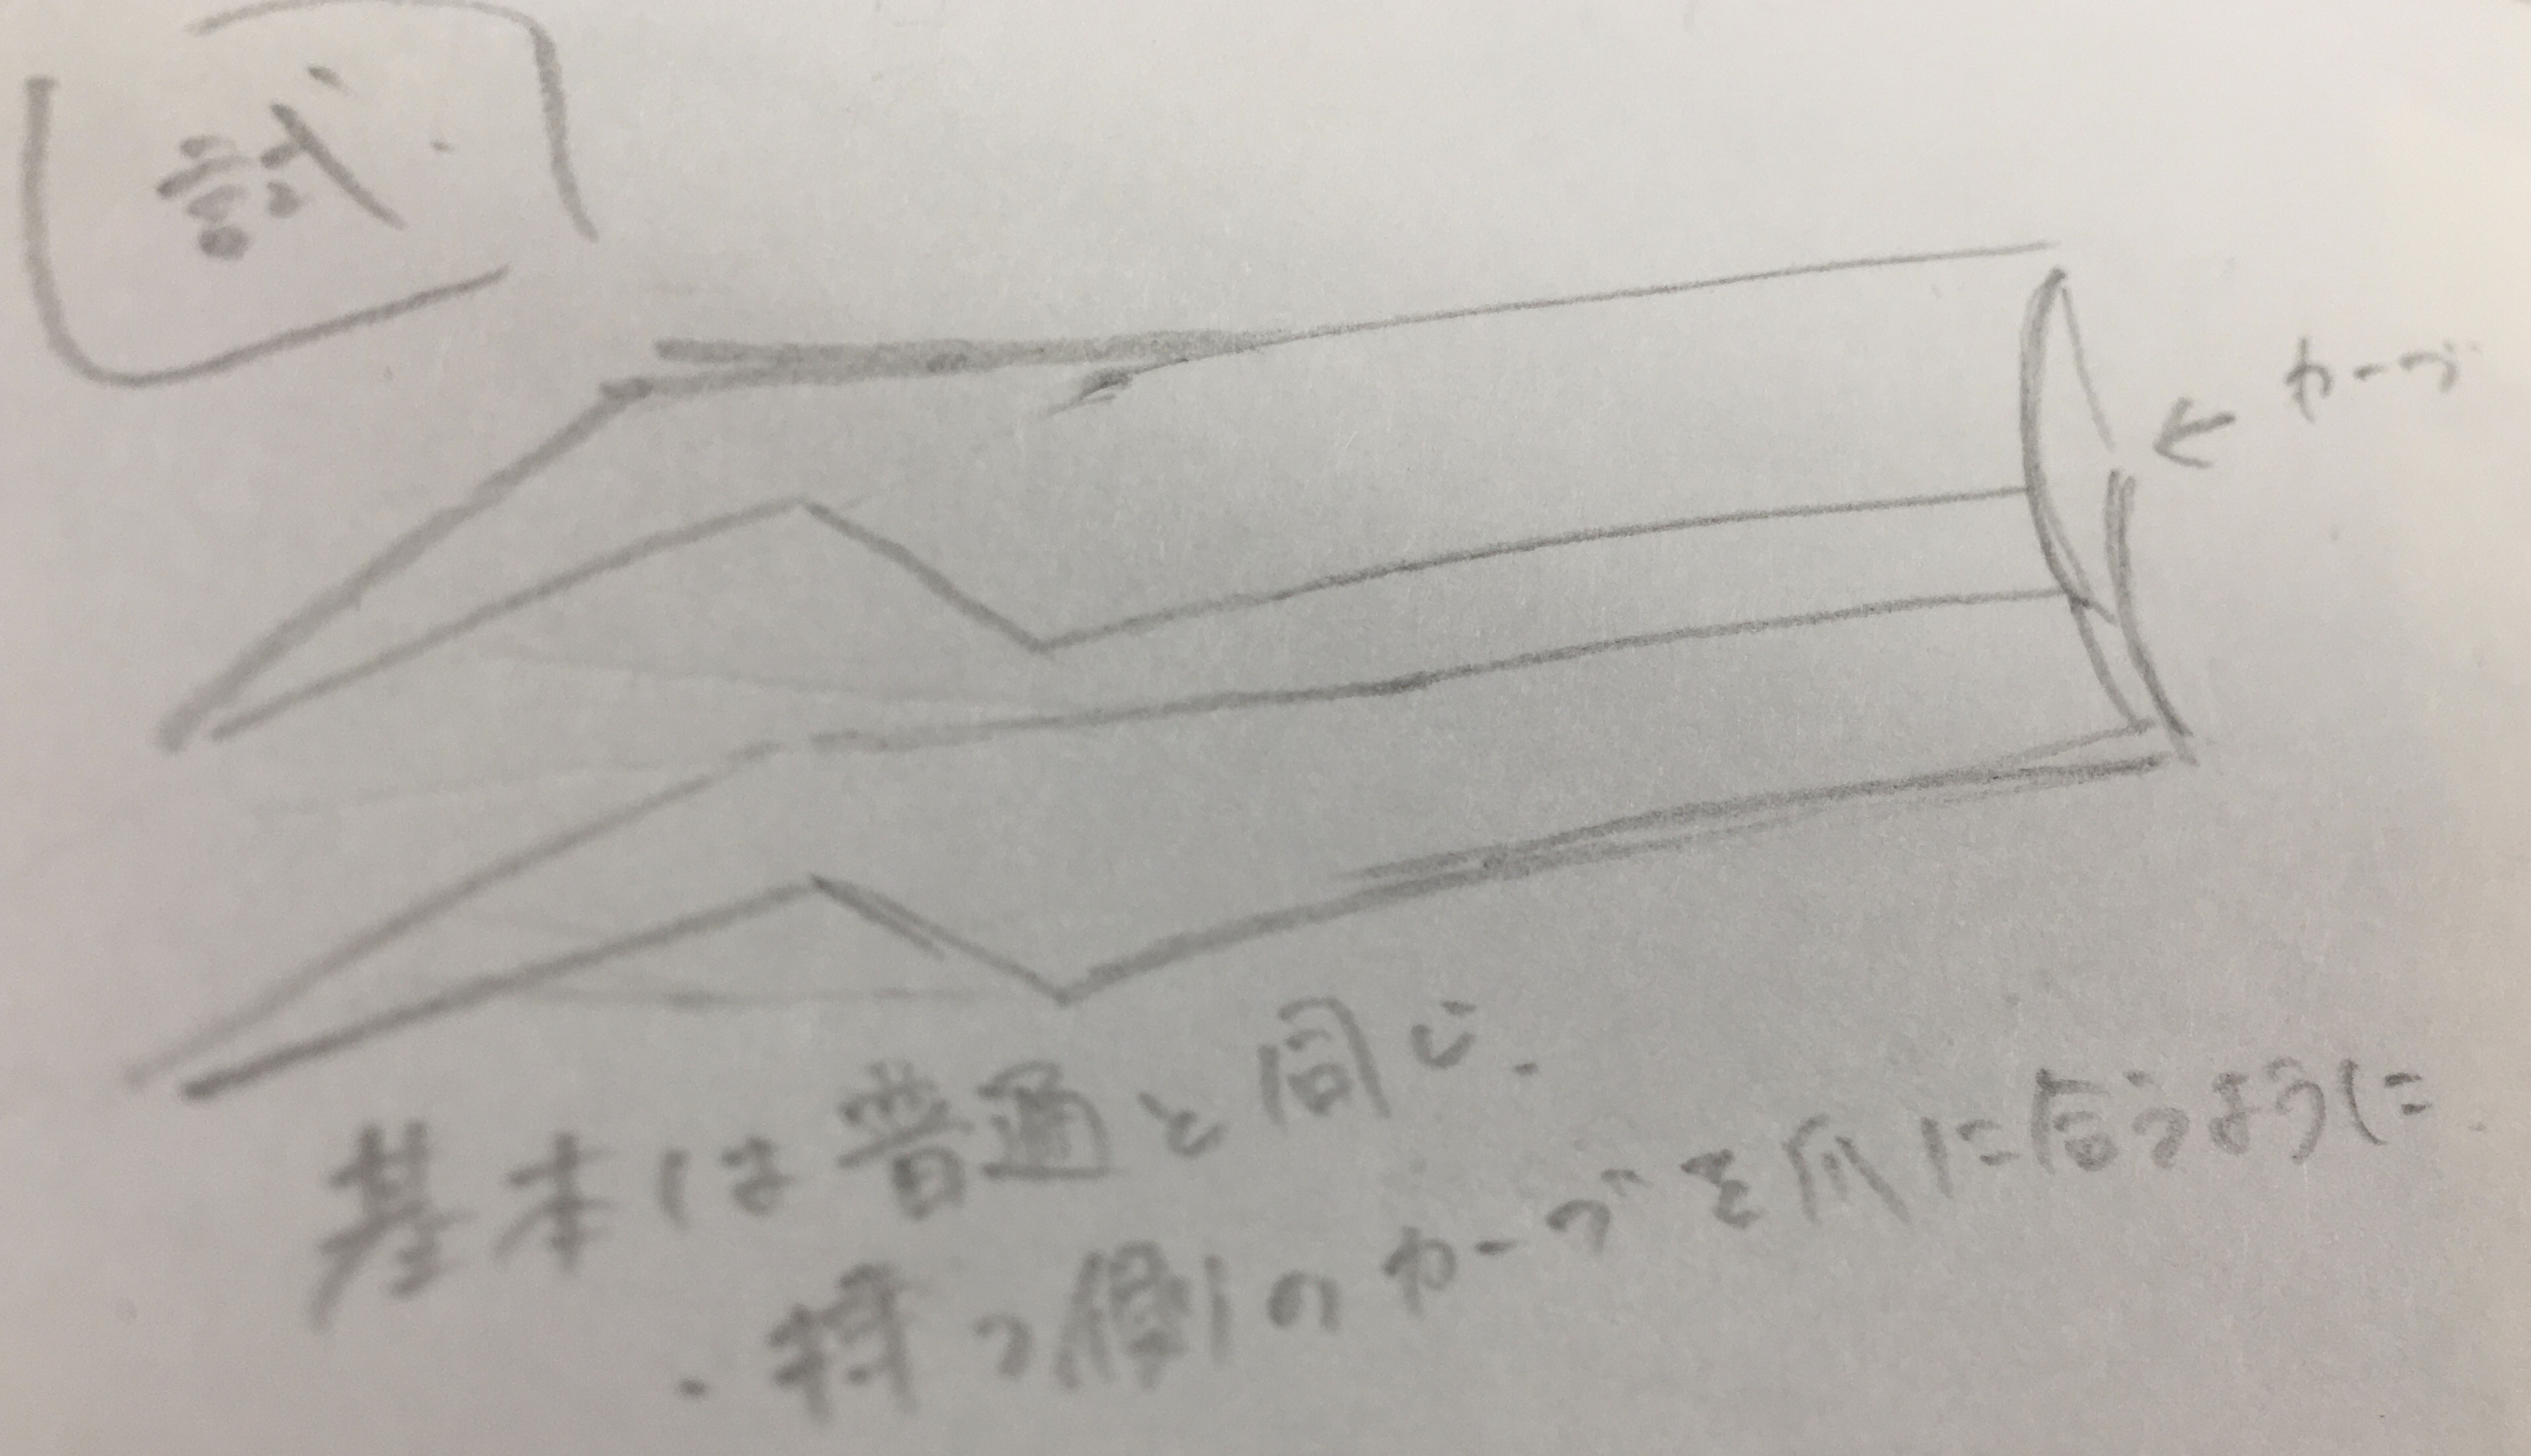 試
カーブ
基本は普通と同じ.
・持つ側のカーブを爪に合うように